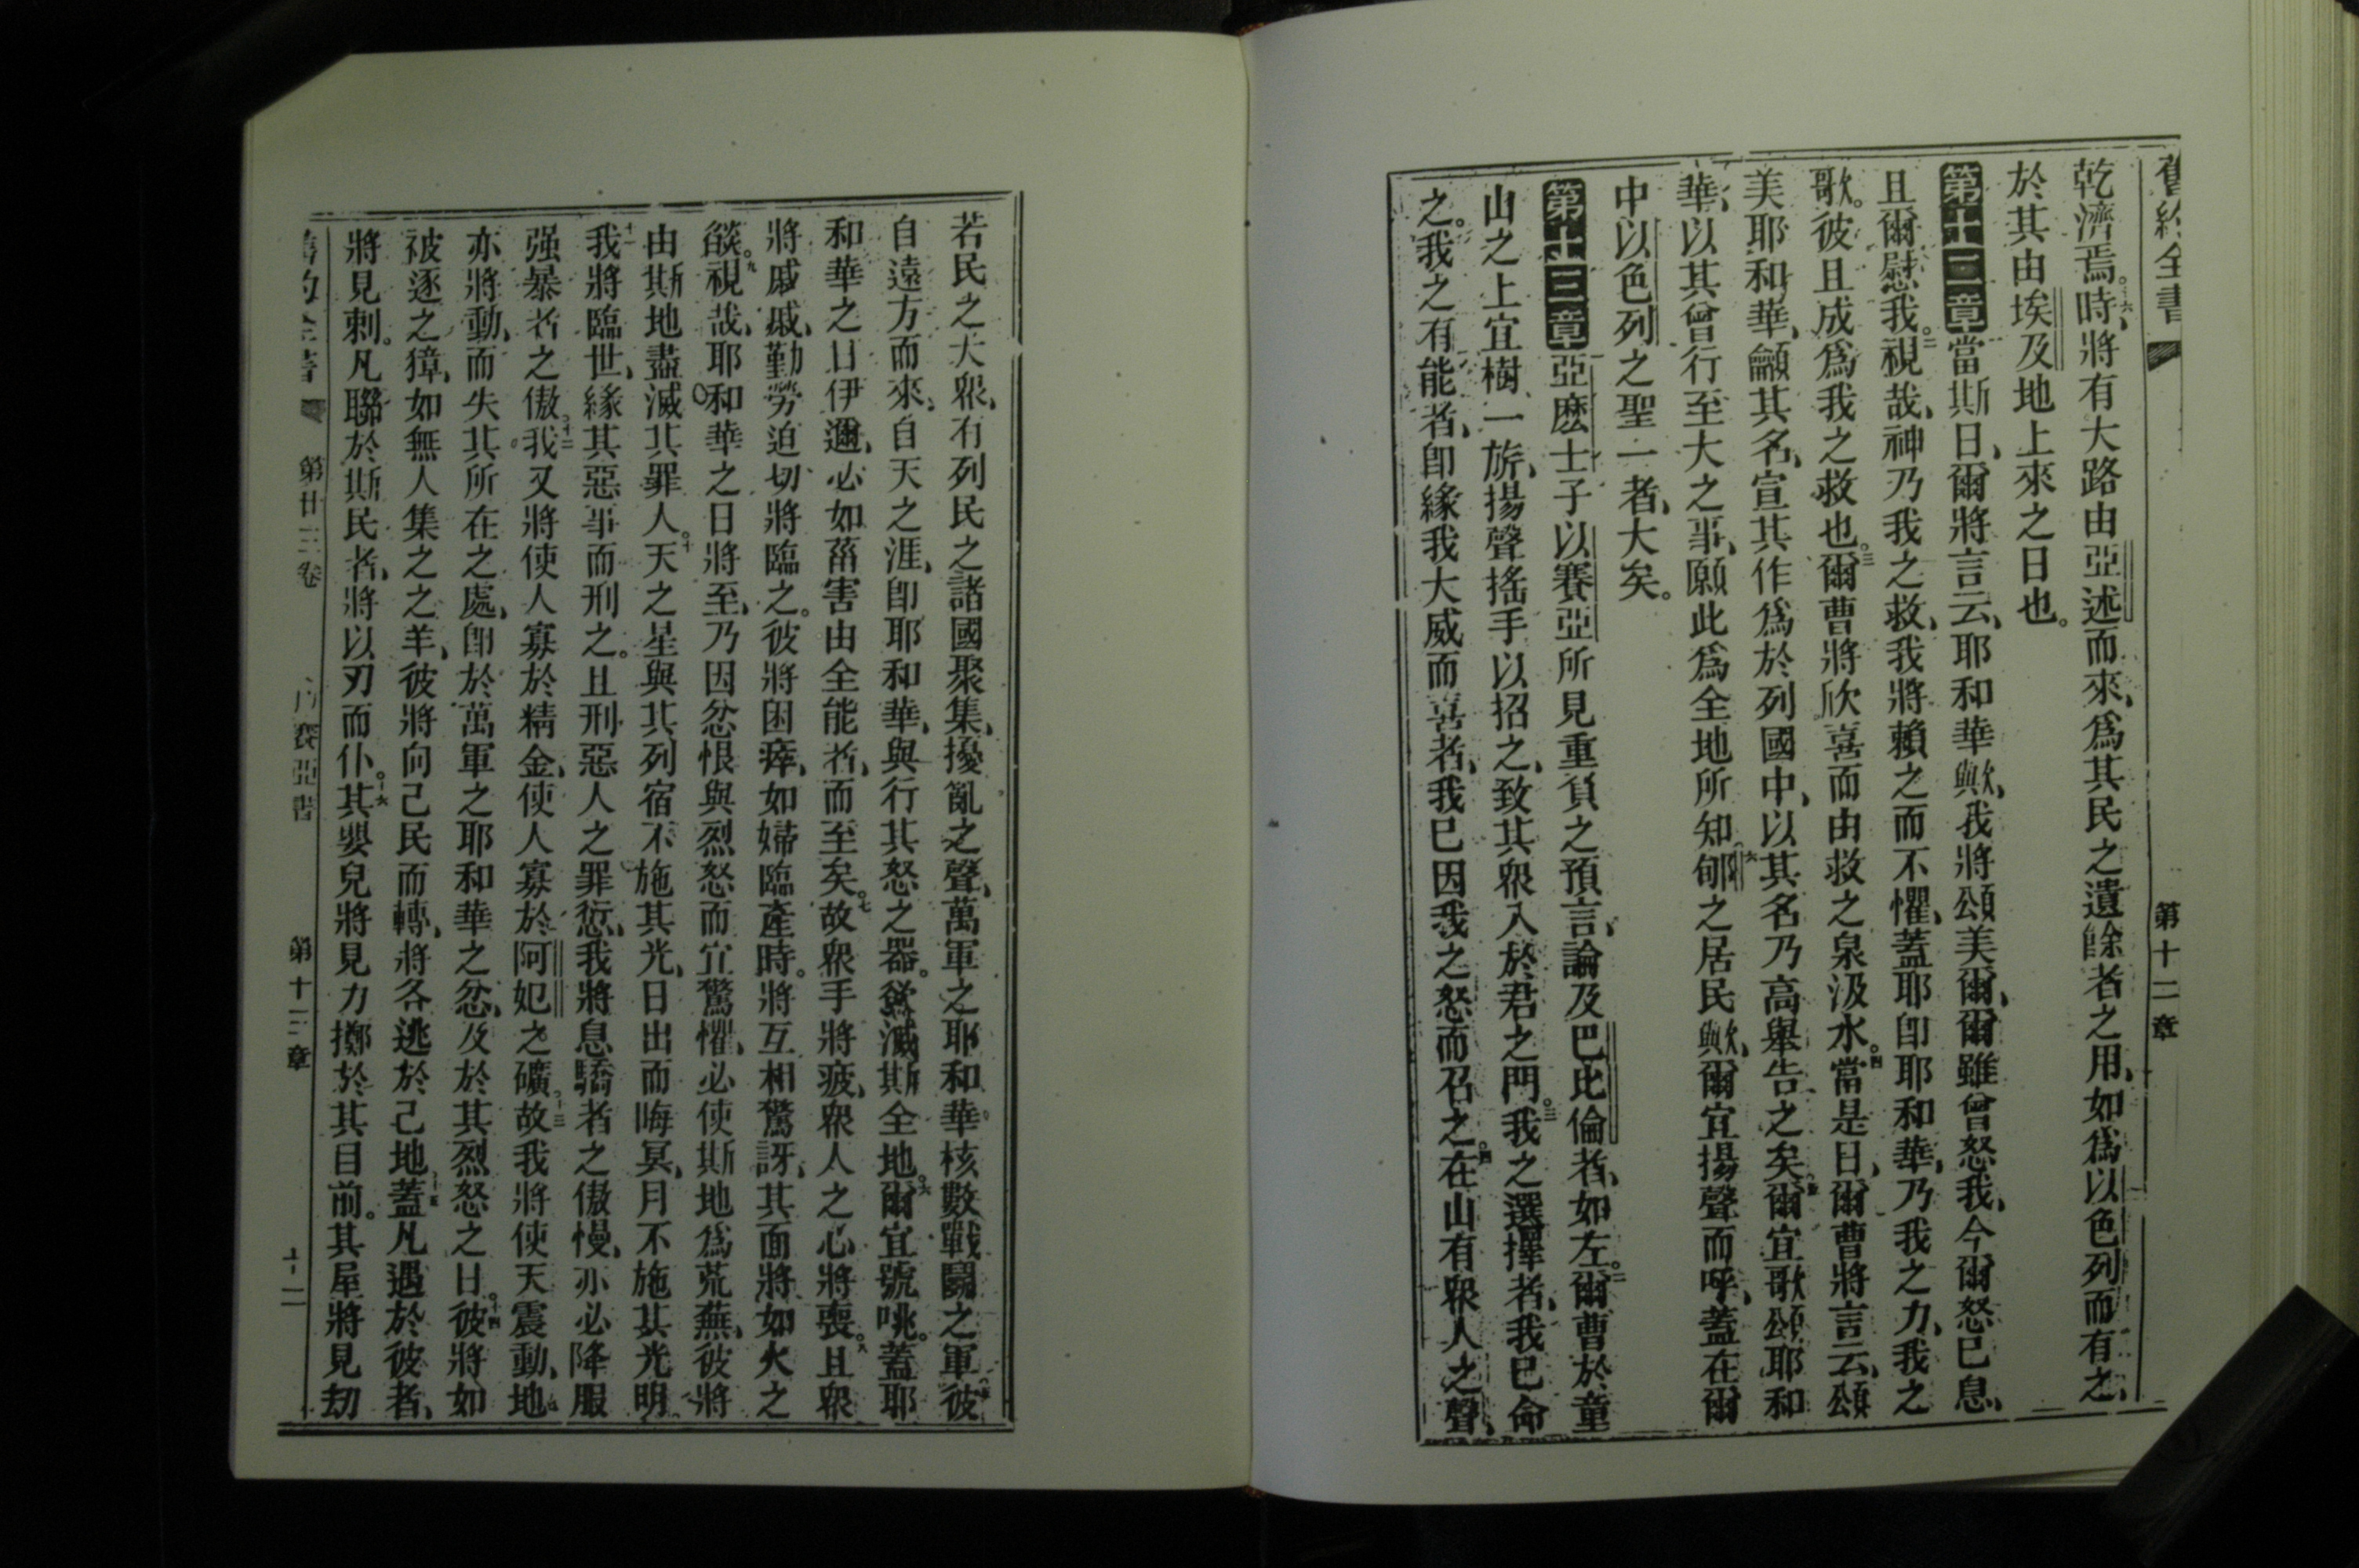 舊約全書 第十二章
乾濟焉。十六時、將有大路由亞述而來、爲其民之遺餘者之用、如爲以色列而有之、
於其由埃及地上來之日也。
第十二章當斯日、爾將言云、耶和華歟、我將頌美爾、爾雖曾怒我、今爾怒已息、
且爾慰我。二視哉、神乃我之救、我將賴之而不懼、蓋耶卽耶和華、乃我之力、我之
歌。彼且成爲我之救也。三爾曹將欣喜而由救之泉汲水。四當是日、爾曹將言云、頌
美耶和華、龥其名、宣其作爲於列國中、以其名乃高舉告之矣。五爾宜歌頌耶和
華、以其曾行至大之事、願此爲全地所知。六郇之居民歟、爾宜揚聲而呼、蓋在爾
中以色列之聖一者、大矣。
第十三章亞麽士子以賽亞所見重負之預言、論及巴比倫者、如左。二爾曹於童
山之上宜樹一旂、揚聲搖手以招之、致其衆入於君之門。三我之選擇者、我已命
之。我之有能者、卽緣我大威而喜者、我已因我之怒而召之。四在山有衆人之聲、
若民之大衆、有列民之諸國聚集、擾亂之聲、萬軍之耶和華核數戰鬪之軍。五彼
自遠方而來、自天之涯、卽耶和華、與行其怒之器。欲滅斯全地。六爾宜號咷。蓋耶
和華之日伊邇、必如菑害由全能者、而至矣。七故衆手將疲、衆人之心將喪。八且衆
將戚戚、勤勞迫切將臨之。彼將困瘁、如婦臨產時。將互相驚訝、其面將如火之
燄。九視哉、耶和華之日將至、乃因忿恨與烈怒而宜驚懼、必使斯地爲荒蕪、彼將
由斯地盡滅其罪人。十天之星與其列宿不施其光、日出而晦冥、月不施其光明。
十一我將臨世、緣其惡事而刑之。且刑惡人之罪愆、我將息驕者之傲慢、亦必降服
强暴者之傲。十二我又將使人寡於精金、使人寡於阿妃之礦。十三故我將使天震動、地
亦將動、而失其所在之處、卽於萬軍之耶和華之忿、及於其烈怒之日。十四彼將如
被逐之獐、如無人集之之羊、彼將向己民而轉、將各逃於己地。十五蓋凡遇於彼者、
將見刺。凡聯於斯民者、將以刃而仆。十六其嬰兒將見力擲於其目前。其屋將見刧
舊約全書 第廿三卷 以賽亞書 第十三章 十二